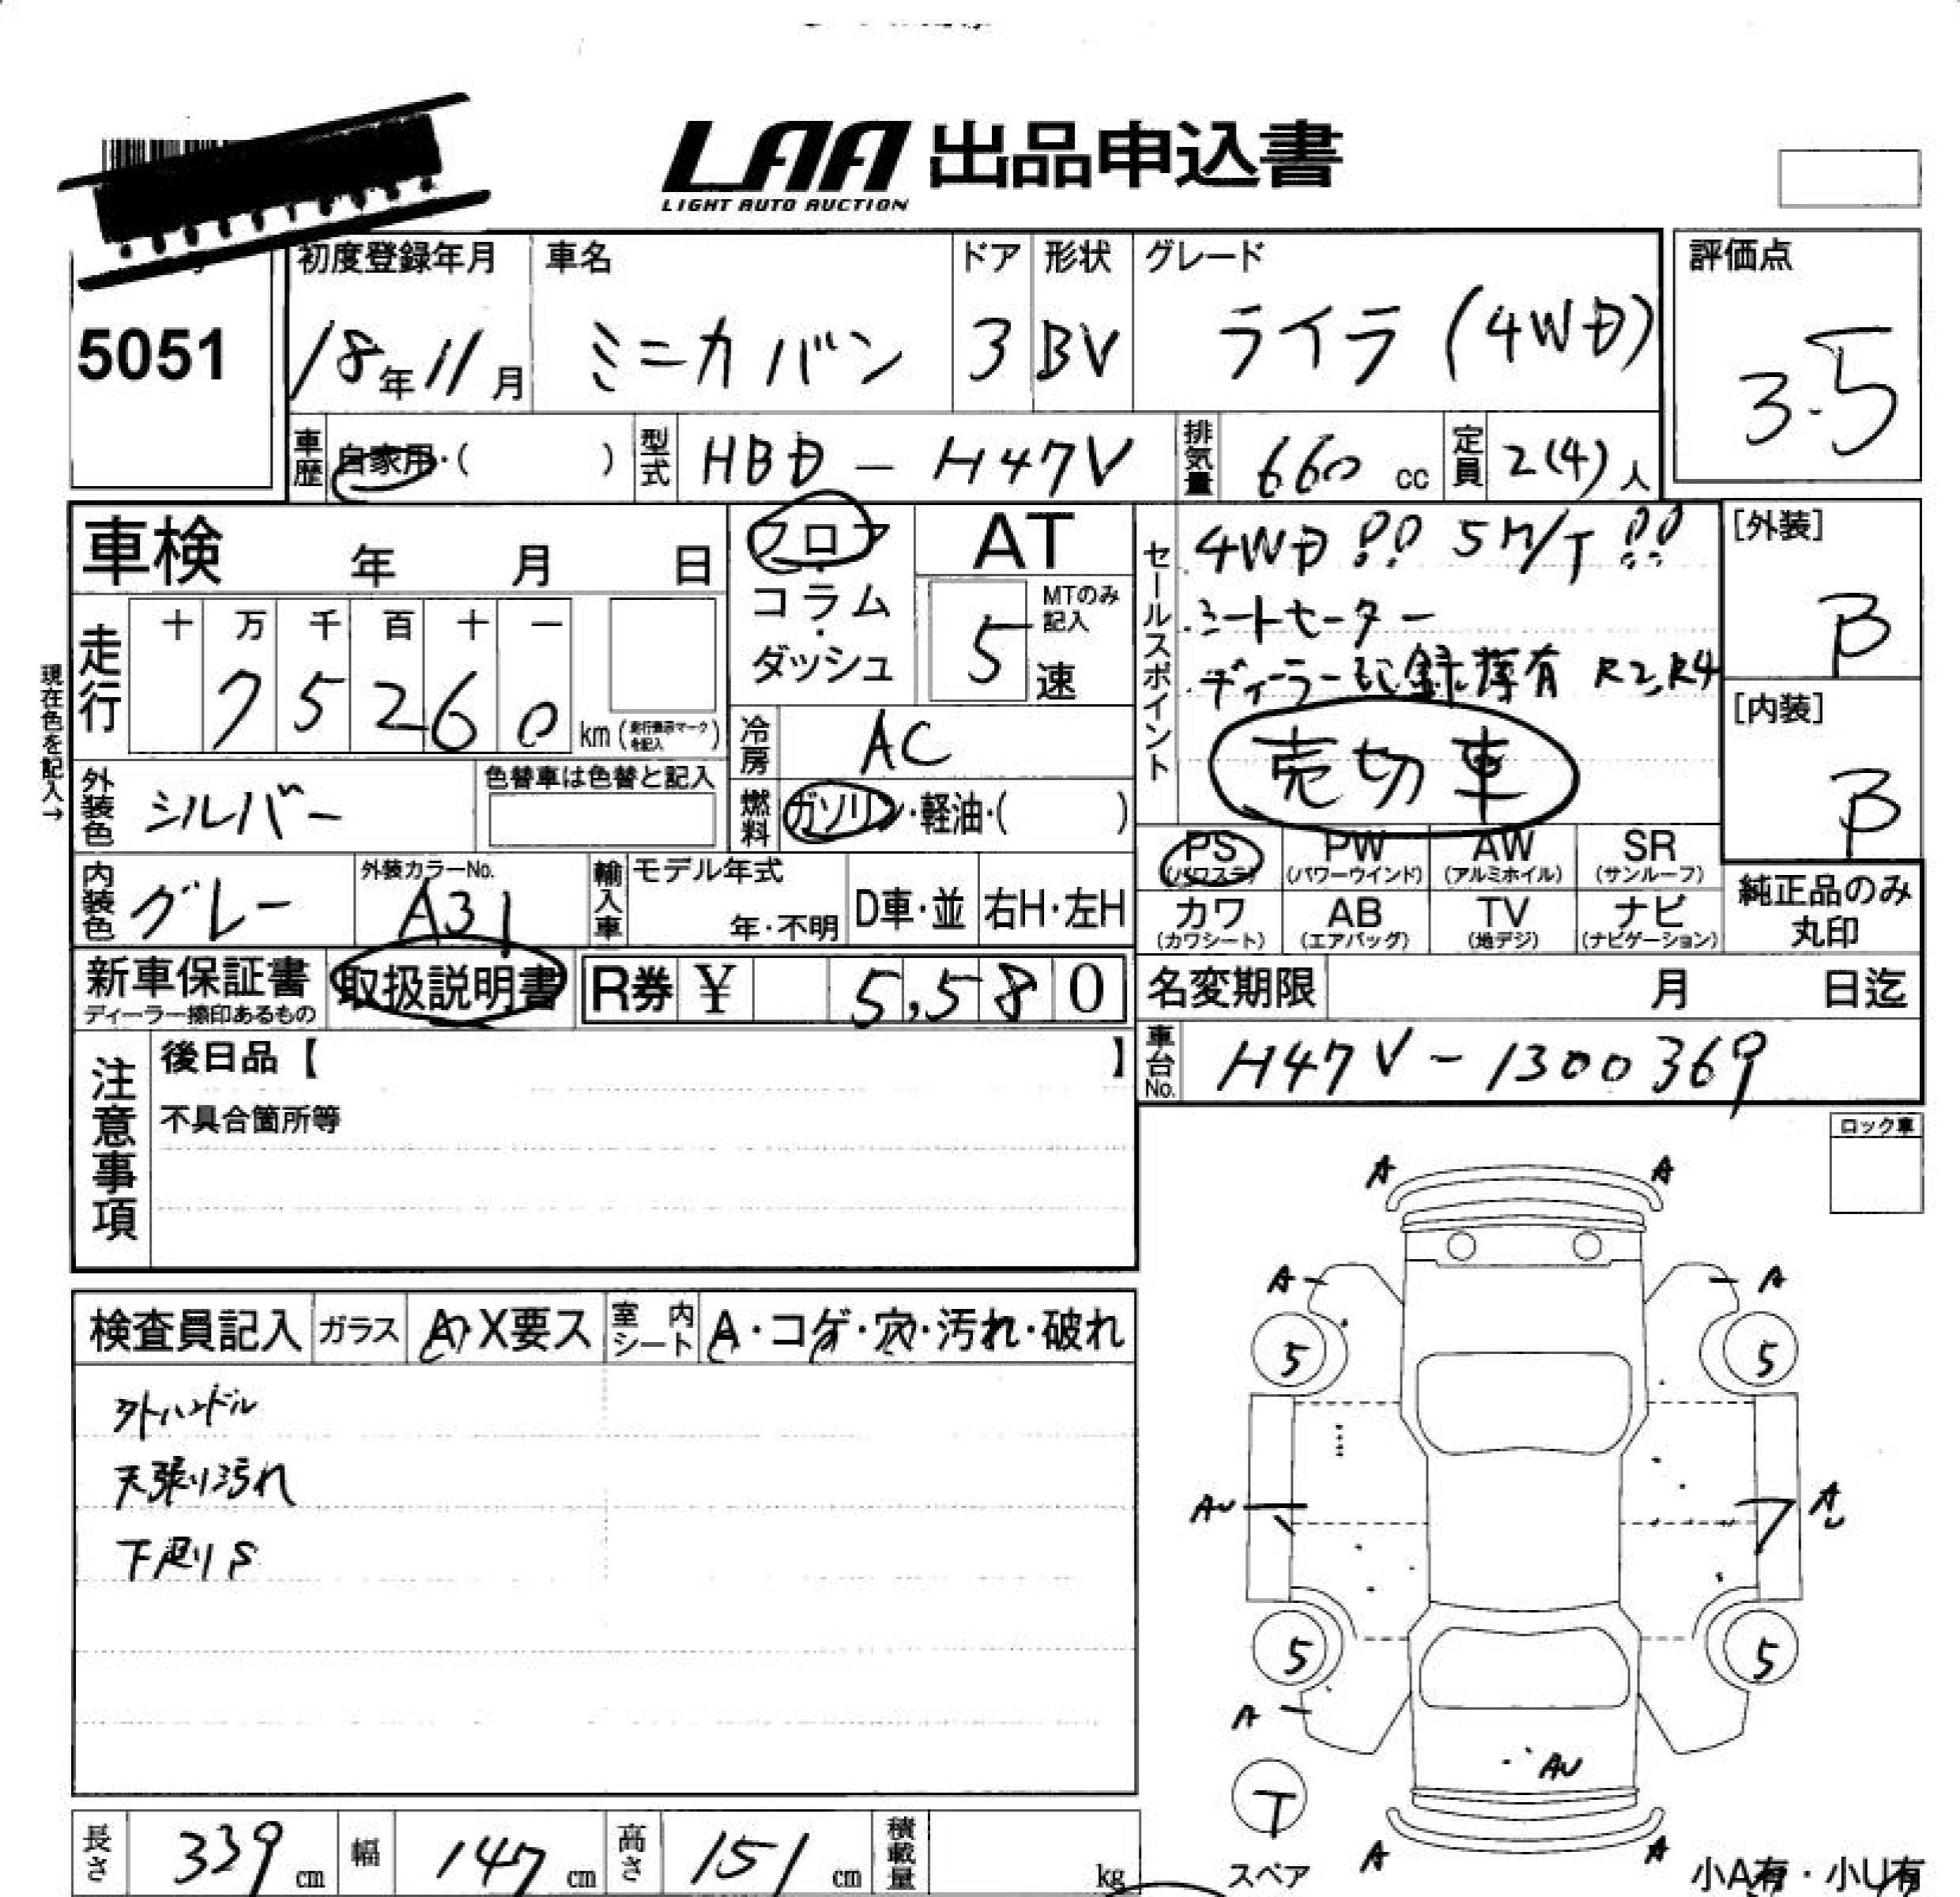 LAA 出品申込書
LIGHT AUTO AUCTION
5051
初度登録年月
18年11月
車名
ミニカバン
ドア
3
形状
BV
グレード
ライラ (4WD)
評価点
3.5
車歴
自家用・( )
型式
HBD - H47V
排気量
660 cc
定員
2(4)人
車検 年 月 日
フロア・コラム・ダッシュ
AT
MTのみ記入
5 速
セールスポイント
4WD!! 5M/T!!
シートヒーター
ディーラー記録簿有 R2,R4
売切車
[外装]
B
[内装]
B
現在色を記入→
走行
十 万 千 百 十 一
7 5 2 6 0 km (走行表示マークを記入)
冷房
AC
外装色
シルバー
色替車は色替と記入
燃料
ガソリン・軽油・( )
PS (パワステ)
PW (パワーウインド)
AW (アルミホイル)
SR (サンルーフ)
カワ (カワシート)
AB (エアバッグ)
TV (地デジ)
ナビ (ナビゲーション)
純正品のみ丸印
内装色
グレー
外装カラーNo.
A31
輸入車
モデル年式
年・不明
D車・並
右H・左H
新車保証書
ディーラー捺印あるもの
取扱説明書
R券 ¥ 5,580
名変期限 月 日迄
車台No.
H47V-1300369
注意事項
後日品【 】
不具合箇所等
ロック車
検査員記入
ガラス
A・X要ス
室内シート
A・コゲ・穴・汚れ・破れ
外ハンドル
天張り汚れ
下廻りS
A A
A A
5 5
AU AU
5 5
A
AU
T
スペア
A A
小A有・小U有
長さ 339 cm
幅 147 cm
高さ 151 cm
積載量 kg